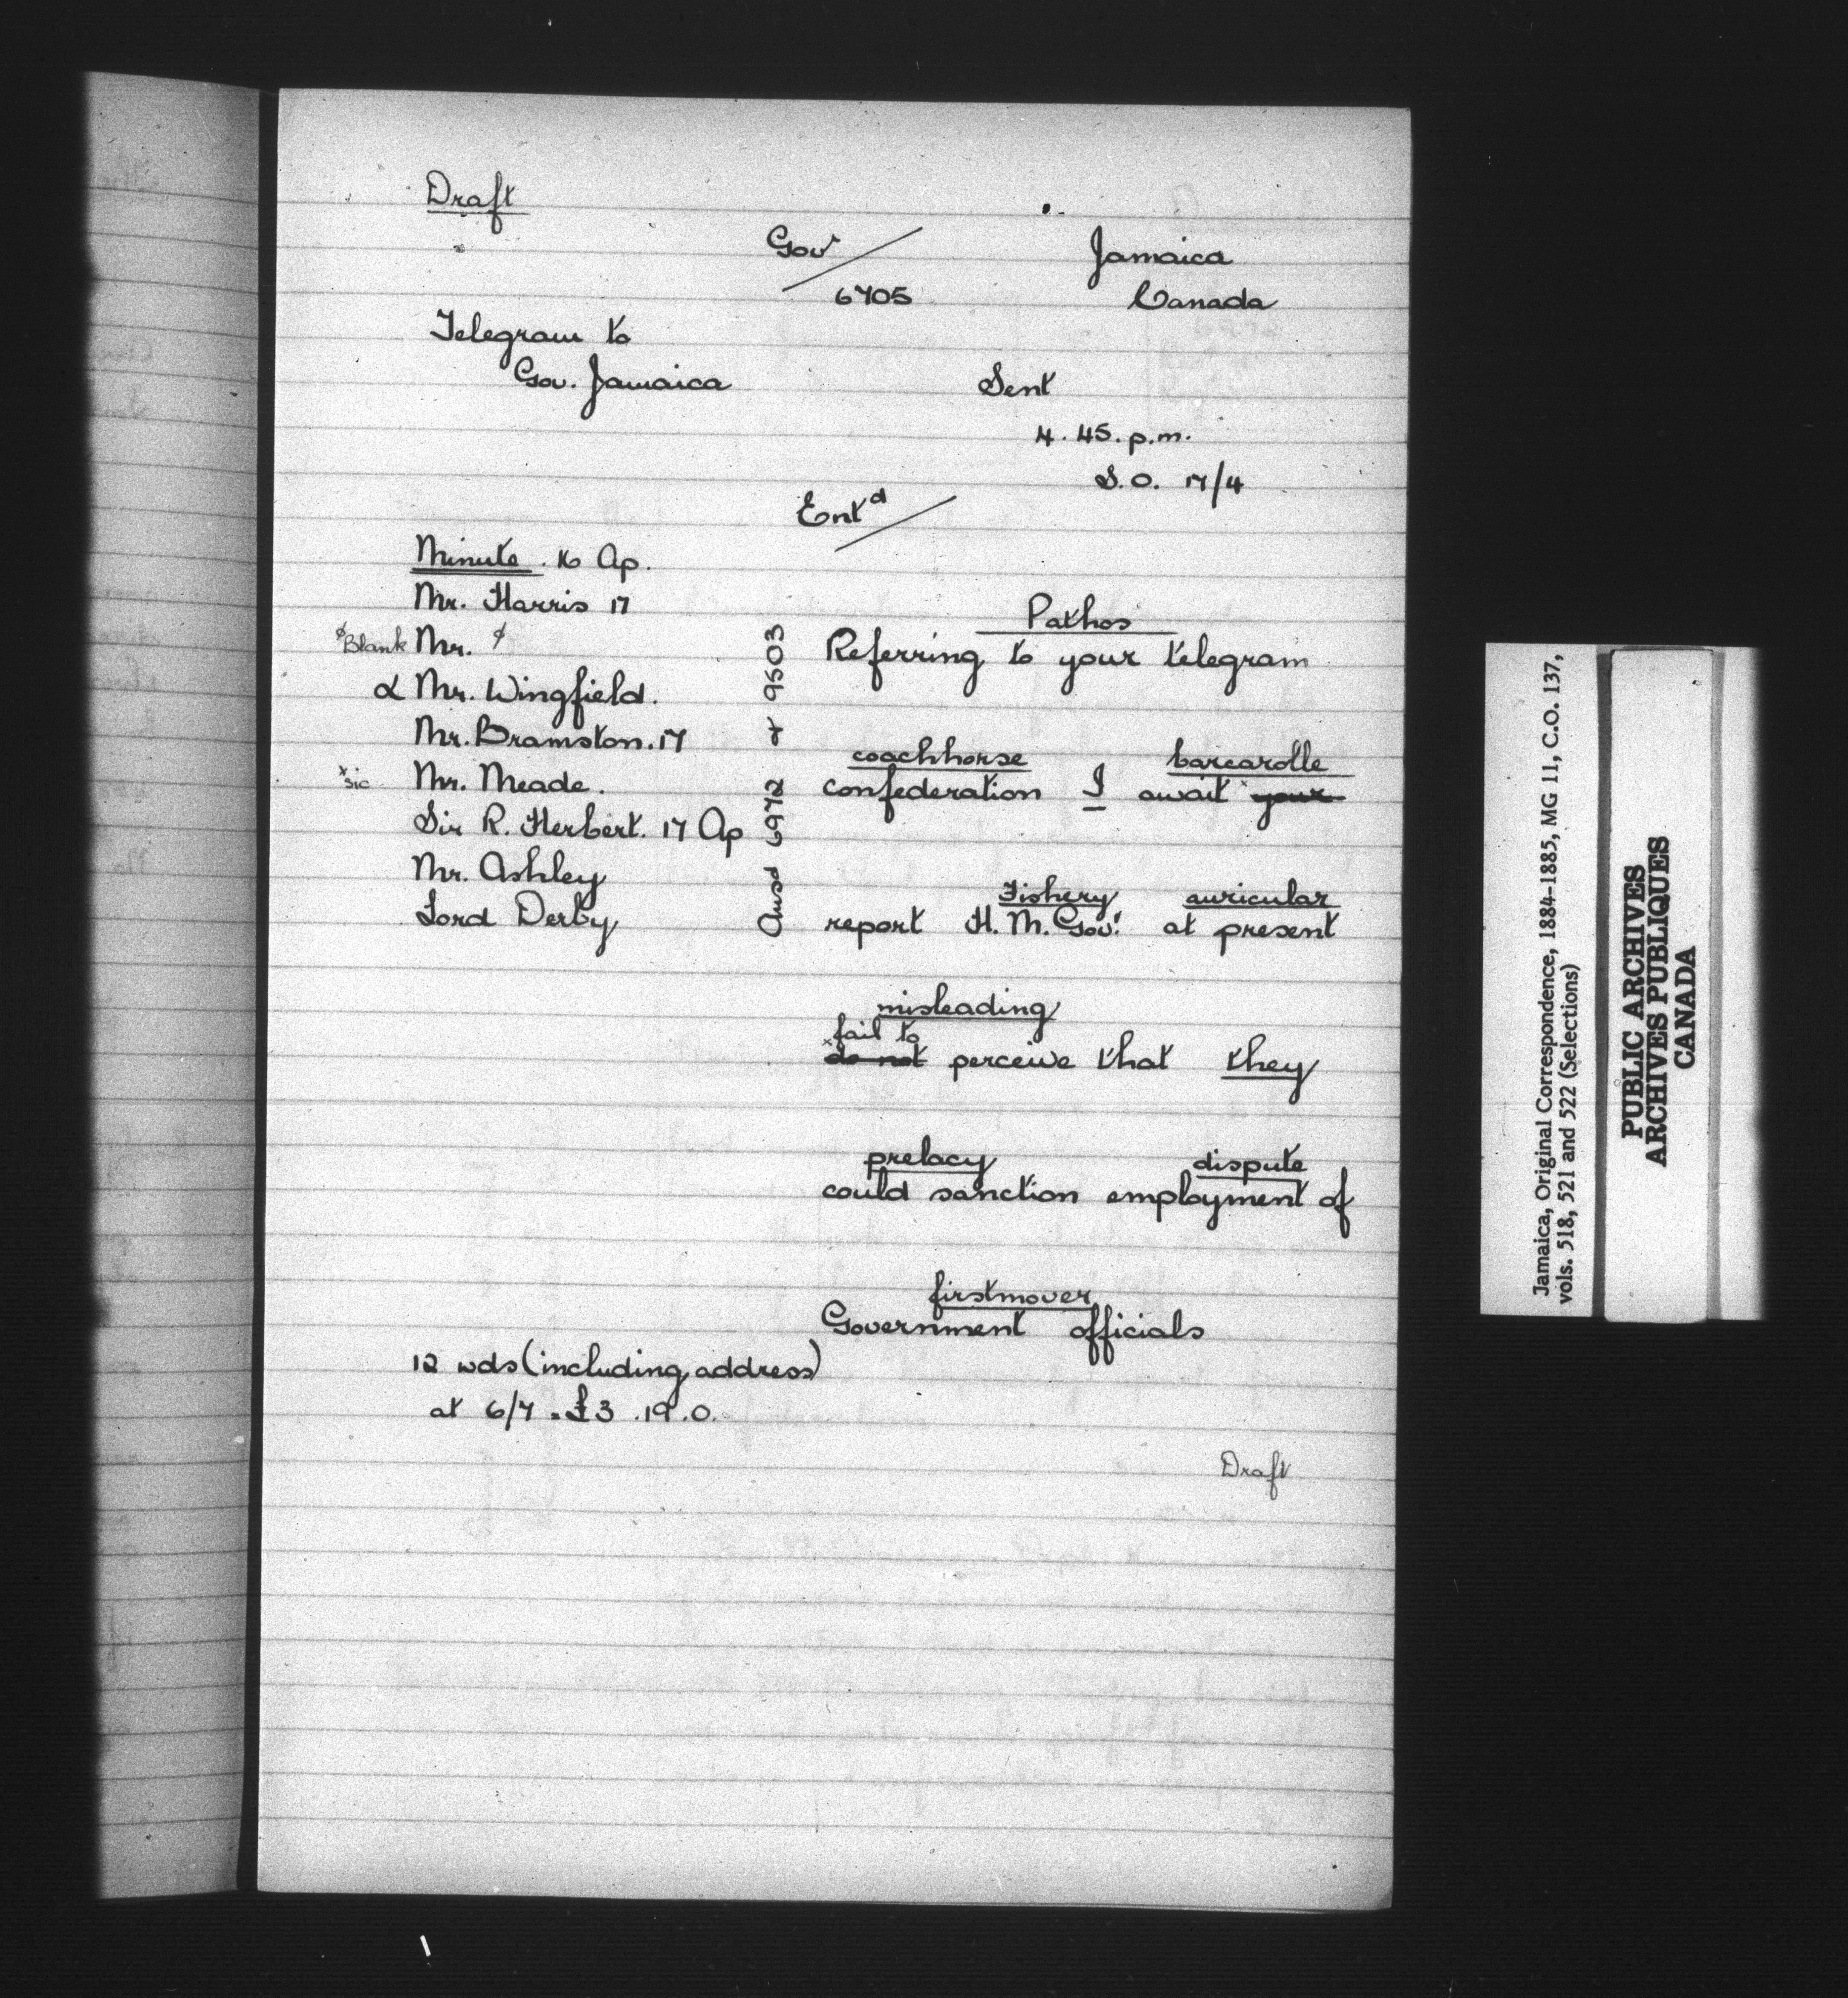 Draft
Gov
6705
Jamaica
Canada
Telegram to
Gov. Jamaica
Sent
4.45.p.m.
S.O. 17/4
Entd
Minute. 16 Ap.
Mr. Harris 17
ɸBlank Mr. ɸ
α Mr. Wingfield.
Mr. Bramston. 17
xsic Mr. Meade.
Sir R. Herbert. 17 Ap
Mr. Ashley
Lord Derby
Ansd 6972 & 9503
Pathos
Referring to your telegram
coachhorse barcarolle
confederation I await your
Fishery auricular
report H.M. Govt. at present
misleading
fail to
xdo not perceive that they
prelacy dispute
could sanction employment of
firstmover
Government officials
12 wds (including address)
at 6/7 = £3.19.0.
Draft
Jamaica, Original Correspondence, 1884-1885, MG 11, C.O. 137,
vols. 518, 521 and 522 (Selections)
PUBLIC ARCHIVES
ARCHIVES PUBLIQUES
CANADA